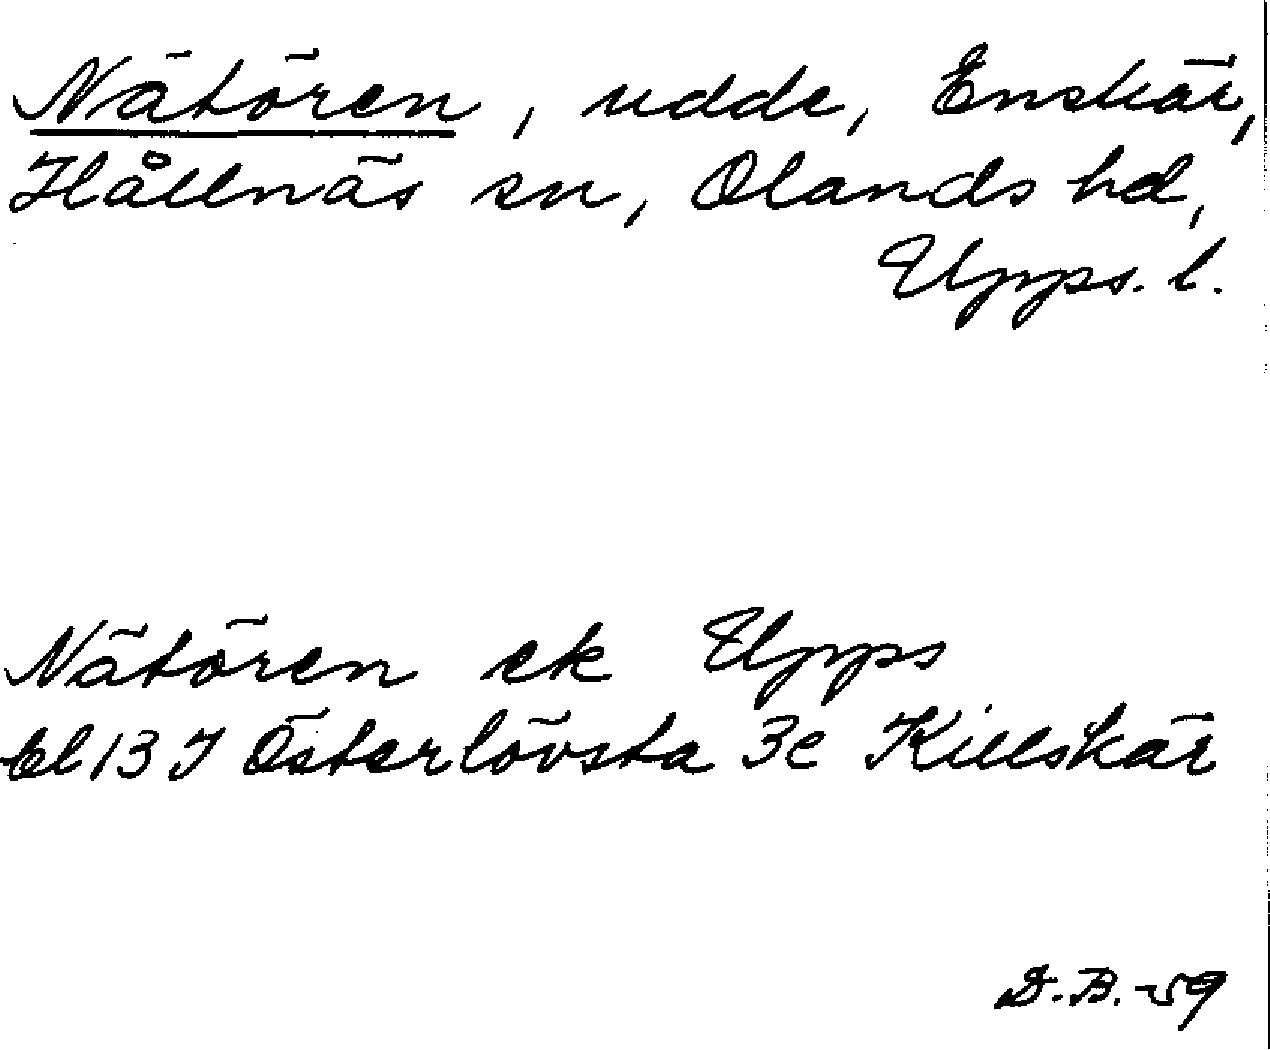 Nätören, udde, Enskär,
Hållnäs sn, Olands hd,
Upps. l.
Nätören ek Upps
bl 13 I Österlövsta 3e Killskär
D.B. -59